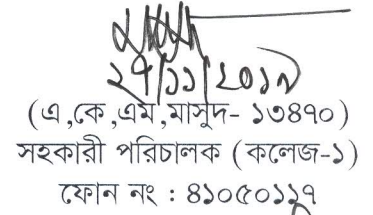 ২৭/১১/২০১৯
(এ,কে,এম,মাসুদ- ১৩৪৭০)
সহকারী পরিচালক (কলেজ-১)
ফোন নং : ৪১০৫০১২৭